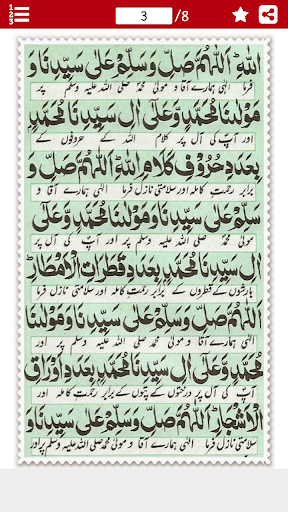 1 2 3
3 /8
اللّٰهِ ؕ اَللّٰهُمَّ صَلِّ وَسَلِّمْ عَلٰى سَيِّدِنَا وَ
فرما الٰہی ہمارے آقا و مولیٰ محمدؐ صلی اللہ علیہ وسلم پر
مَوْلٰنَا مُحَمَّدٍ وَّعَلٰى اٰلِ سَيِّدِنَا مُحَمَّدٍ
اور آپؐ کی آل پر کلام اللہ کے حرفوں کے
بِعَدَدِ حُرُوْفِ كَلَامِ اللّٰهِ ؕ اَللّٰهُمَّ صَلِّ وَ
برابر رحمتِ کاملہ اور سلامتی نازل فرما الٰہی ہمارے آقا و
سَلِّمْ عَلٰى سَيِّدِنَا وَمَوْلٰنَا مُحَمَّدٍ وَّعَلٰى
مولیٰ محمدؐ صلی اللہ علیہ وسلم پر اور آپؐ کی آل پر
اٰلِ سَيِّدِنَا مُحَمَّدٍ بِعَدَدِ قَطَرَاتِ الْاَمْطَارِ ؕ
بارشوں کے قطروں کے برابر رحمتِ کاملہ اور سلامتی نازل فرما
اَللّٰهُمَّ صَلِّ وَسَلِّمْ عَلٰى سَيِّدِنَا وَمَوْلٰنَا
الٰہی ہمارے آقا و مولیٰ محمدؐ صلی اللہ علیہ وسلم پر
مُحَمَّدٍ وَّعَلٰى اٰلِ سَيِّدِنَا مُحَمَّدٍ بِعَدَدِ اَوْرَاقِ
اور آپؐ کی آل پر درختوں کے پتوں کے برابر رحمتِ کاملہ اور
الْاَشْجَارِ ؕ اَللّٰهُمَّ صَلِّ وَسَلِّمْ عَلٰى سَيِّدِنَا وَ
سلامتی نازل فرما الٰہی ہمارے آقا و مولیٰ محمد صلی اللہ علیہ وسلم پر اور